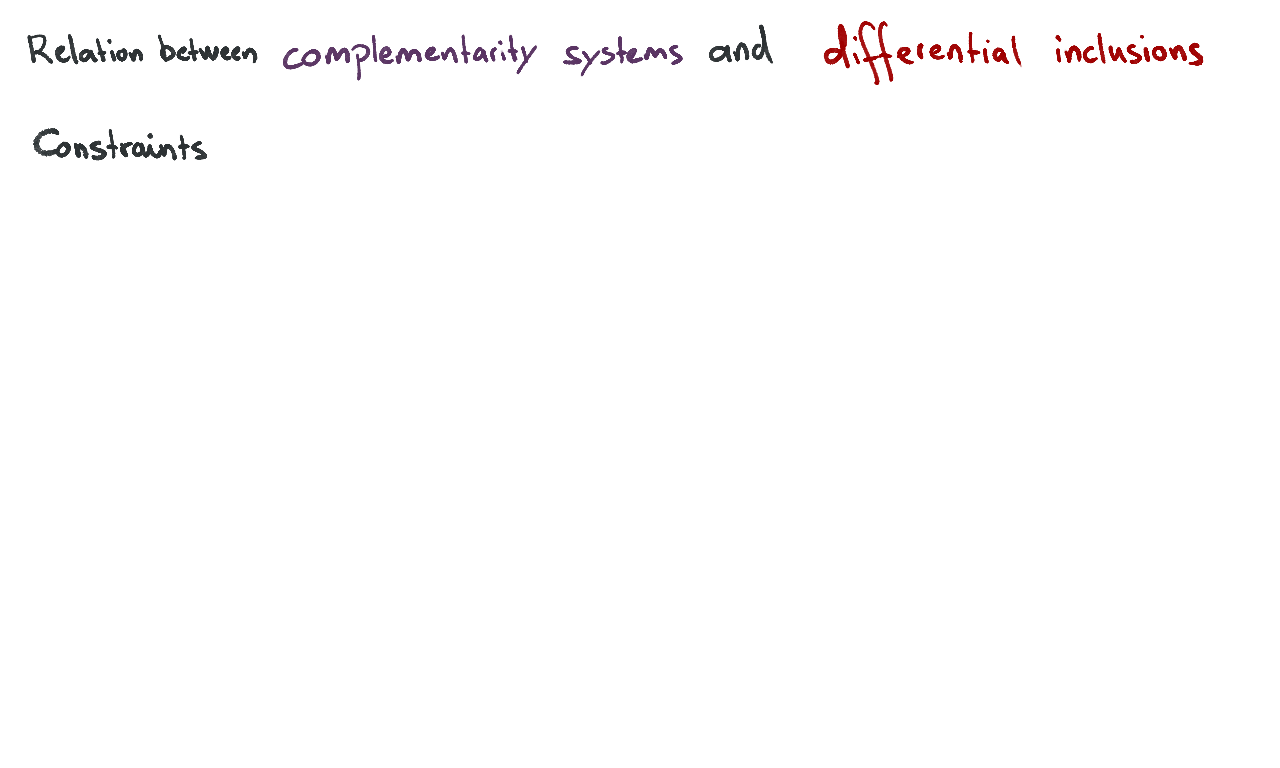 Relation between complementarity systems and differential inclusions
Constraints